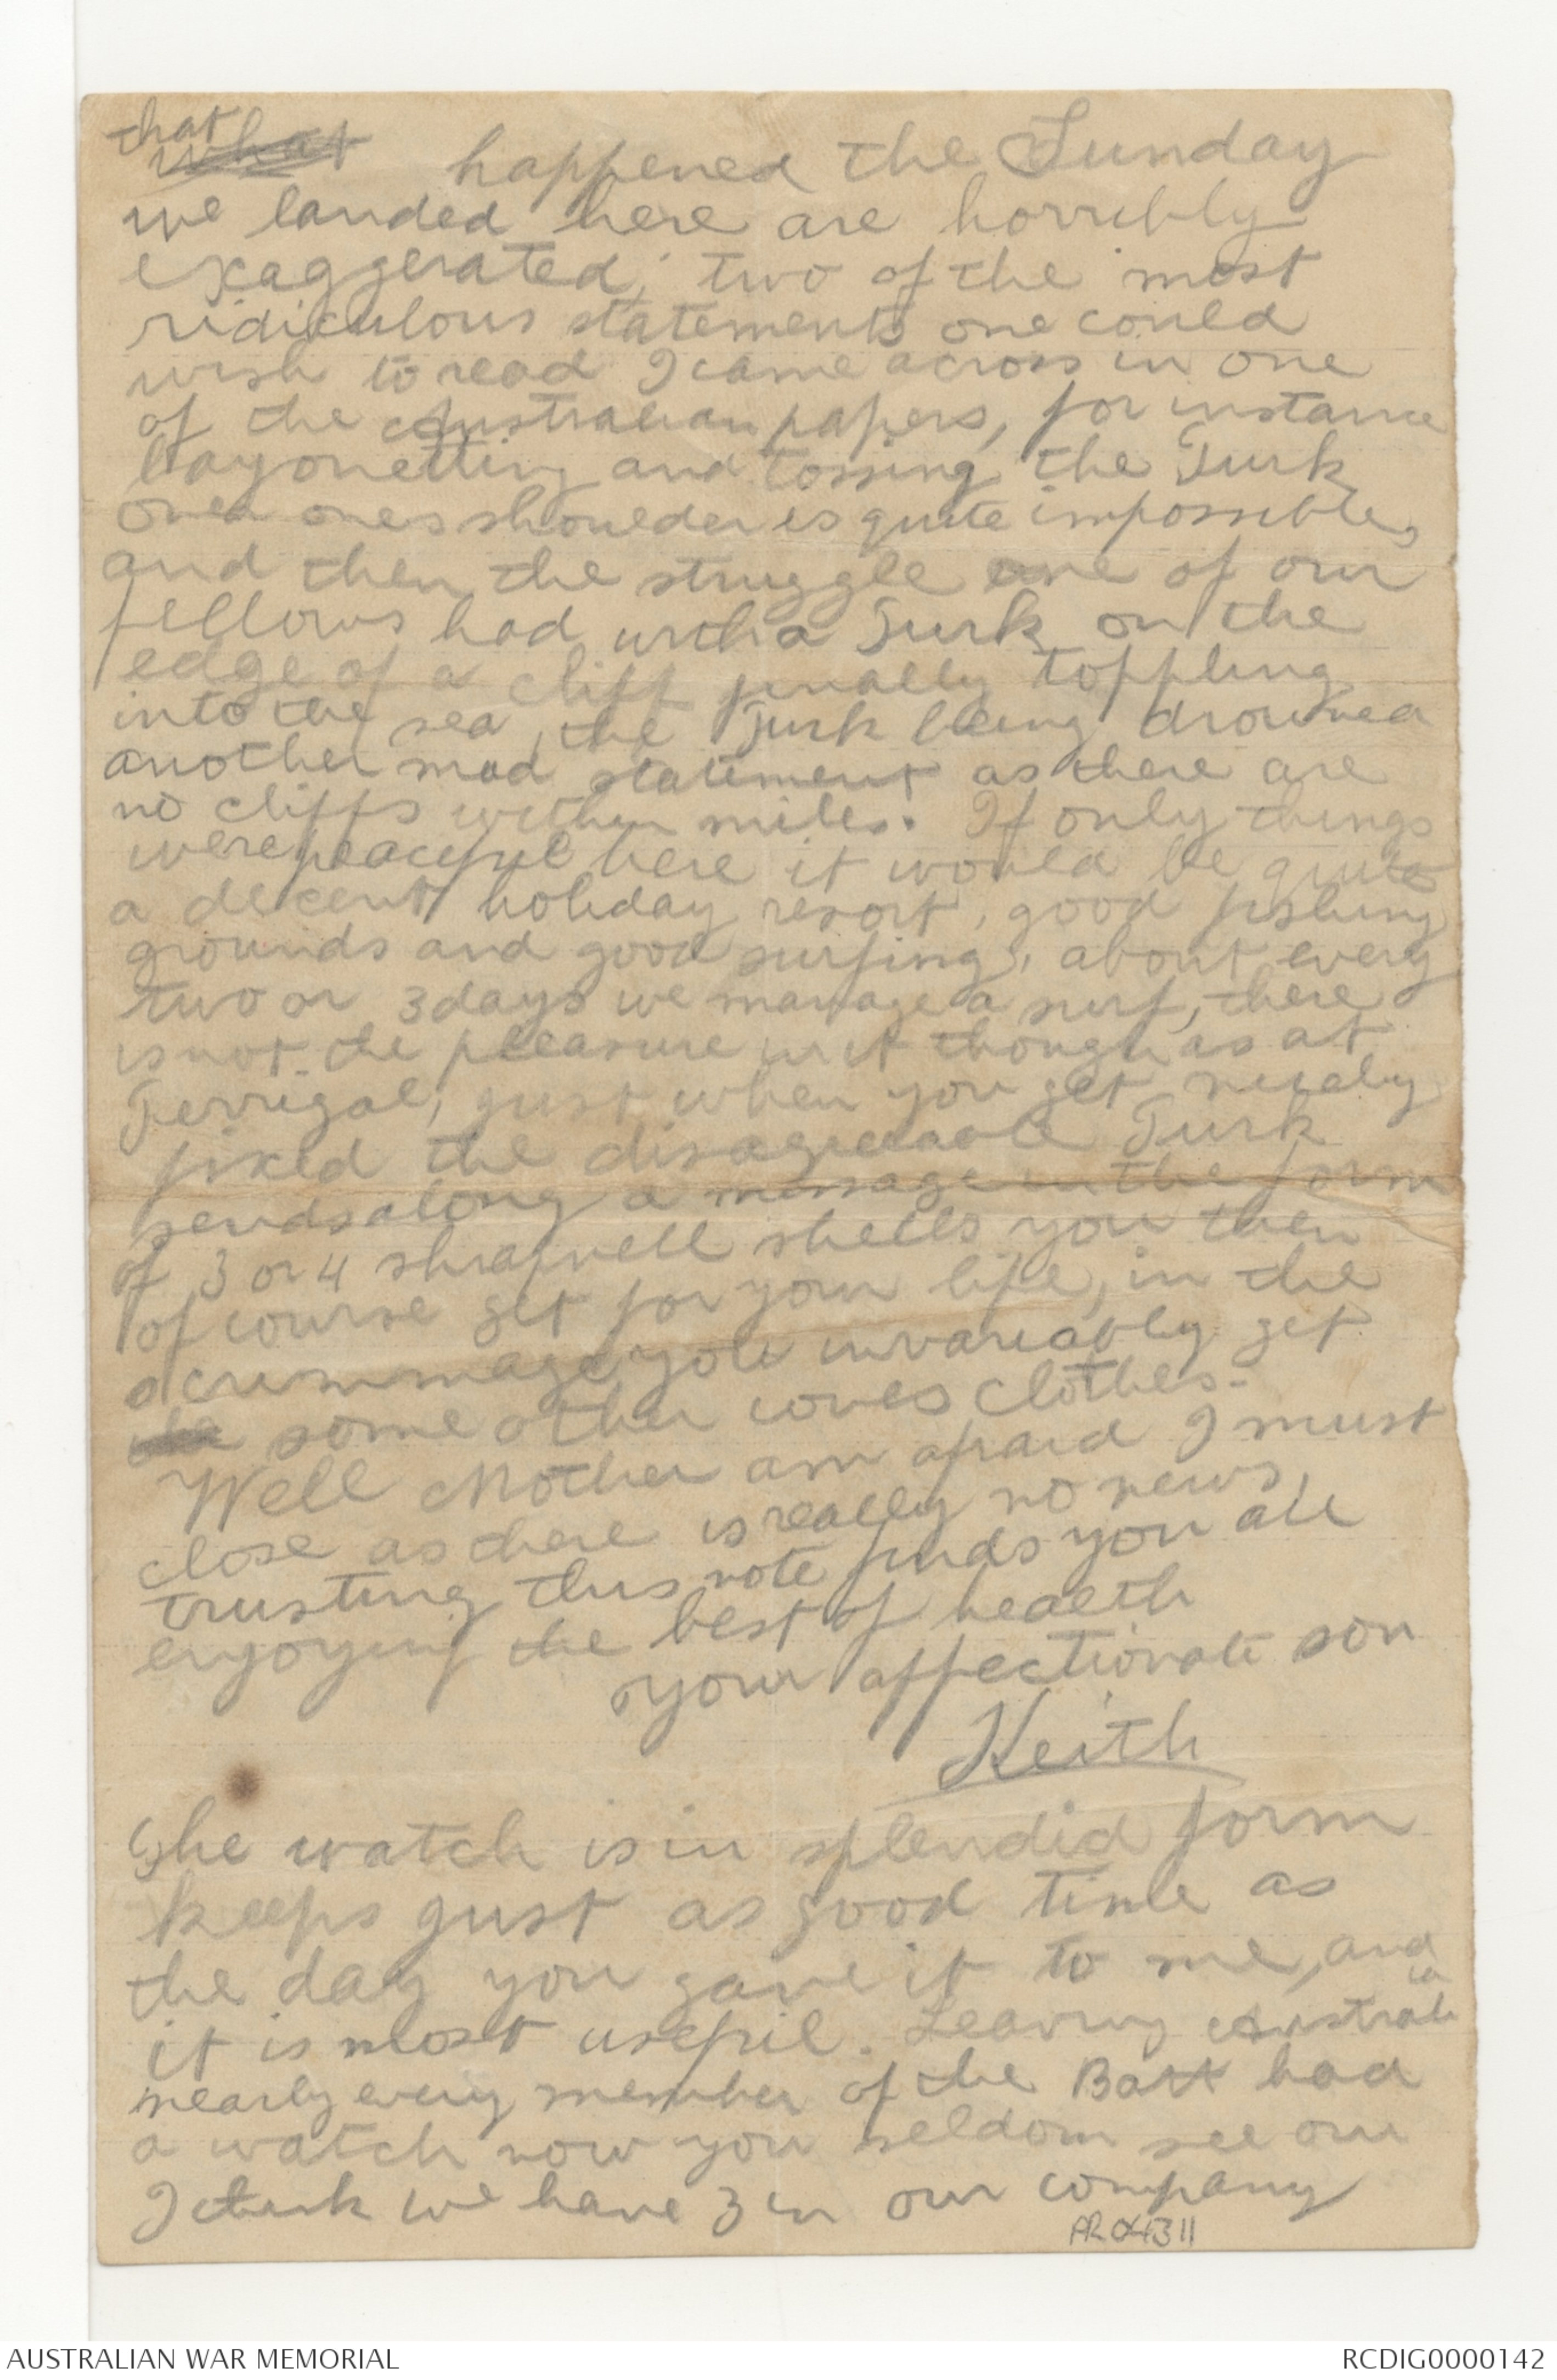 that
what happened the Sunday
we landed here are horribly
exaggerated; two of the most
ridiculous statements one could
wish to read I came across in one
of the Australian papers, for instance
bayonetting and tossing the Turk
over ones shoulder is quite impossible,
and then the struggle one of our
fellows had with a Turk on the
edge of a cliff finally toppling
into the sea, the Turk being drowned
another mad statement as there are
no cliffs within miles. If only things
were peaceful here it would be quite
a decent holiday resort, good fishing
grounds and good surfing, about every
two or 3 days we manage a surf, there
is not the pleasure in it though as at
Terrigal, just when you get nicely
fixed the disagreeable Turk
sends along a message in the form
of 3 or 4 shrapnell shells you then
of course get for your life, in the
scrummage you invariably get
some other coves clothes.
Well Mother am afraid I must
close as there is really no news,
trusting this note finds you all
enjoying the best of health
your affectionate son
Keith
The watch is in splendid form
keeps just as good time as
the day you gave it to me, and
it is most useful. Leaving Australia
nearly every member of the Batt had
a watch now you seldom see one
I think we have 3 in our company
AUSTRALIAN WAR MEMORIAL
RCDIG0000142